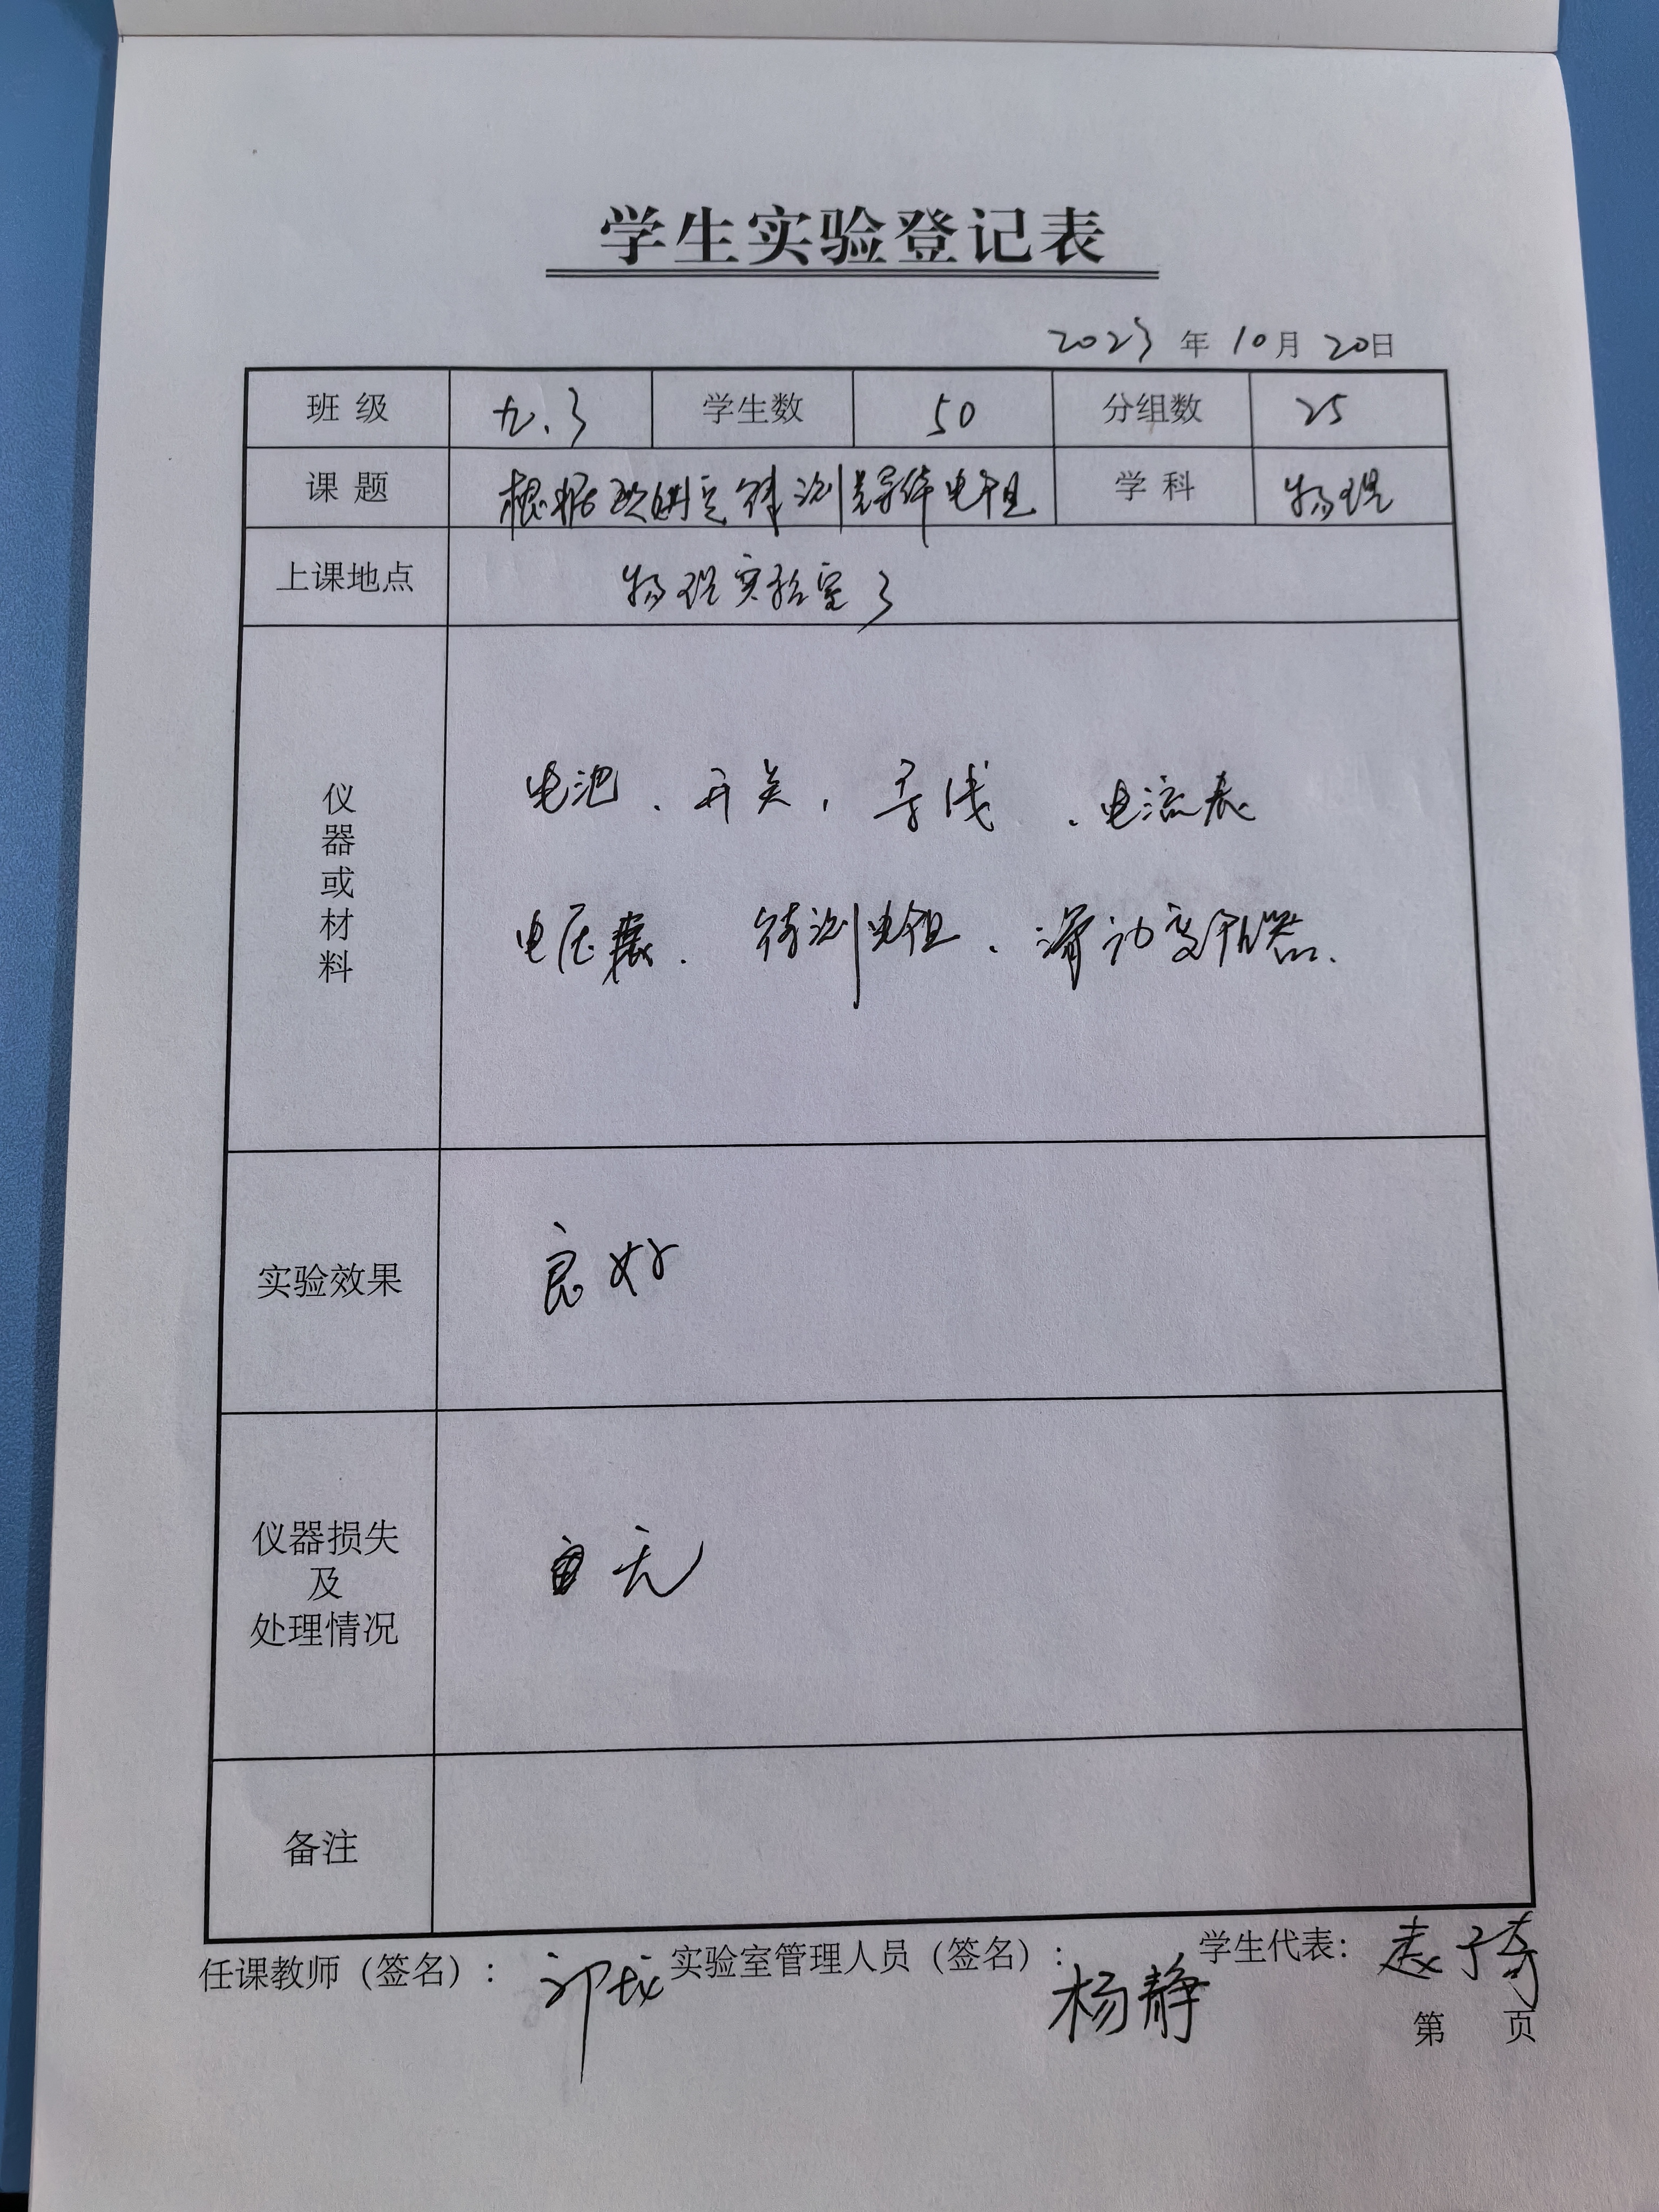 学生实验登记表
2023年10月20日
班级 九.3 学生数 50 分组数 25
课题 根据欧姆定律测导体电阻 学科 物理
上课地点 物理实验室3
仪器或材料
电池、开关,导线、电流表
电压表、待测电阻、滑动变阻器.
实验效果 良好
仪器损失
及
处理情况
无
备注
任课教师(签名): 实验室管理人员(签名):杨静 学生代表:
第 页